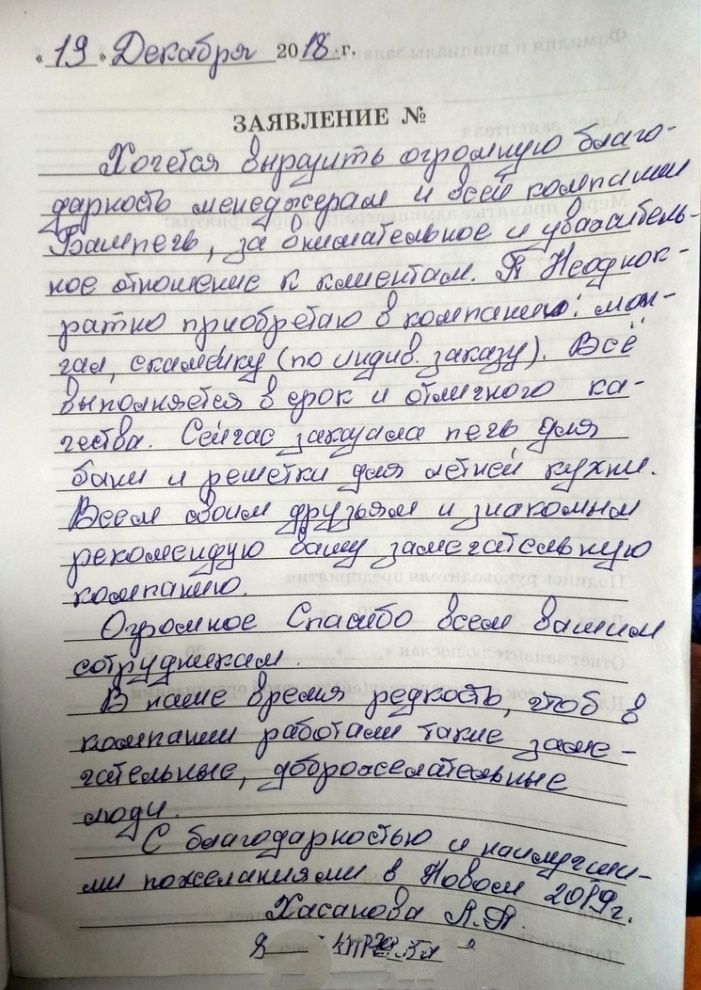 «19» Декабря 2018 г.
ЗАЯВЛЕНИЕ №
Хочется выразить огромную благо-
дарность менеджерам и всей компании
Вампечь, за внимательное и уважитель-
ное отношение к клиентам. Я Неоднок-
ратно приобретаю в компании: ман-
гал, скамейку (по индив. заказу). Всё
выполняется в срок и отличного ка-
чества. Сейчас заказала печь для
бани и решетки для летней кухни.
Всем своим друзьям и знакомым
рекомендую вашу замечательную
компанию.
Огромное Спасибо всем вашим
сотрудникам.
В наше время редкость, чтоб в
компании работали такие заме-
чательные, доброжелательные
люди.
С благодарностью и наилучши-
ми пожеланиями в Новом 2019г.
Хасанова А.Я.